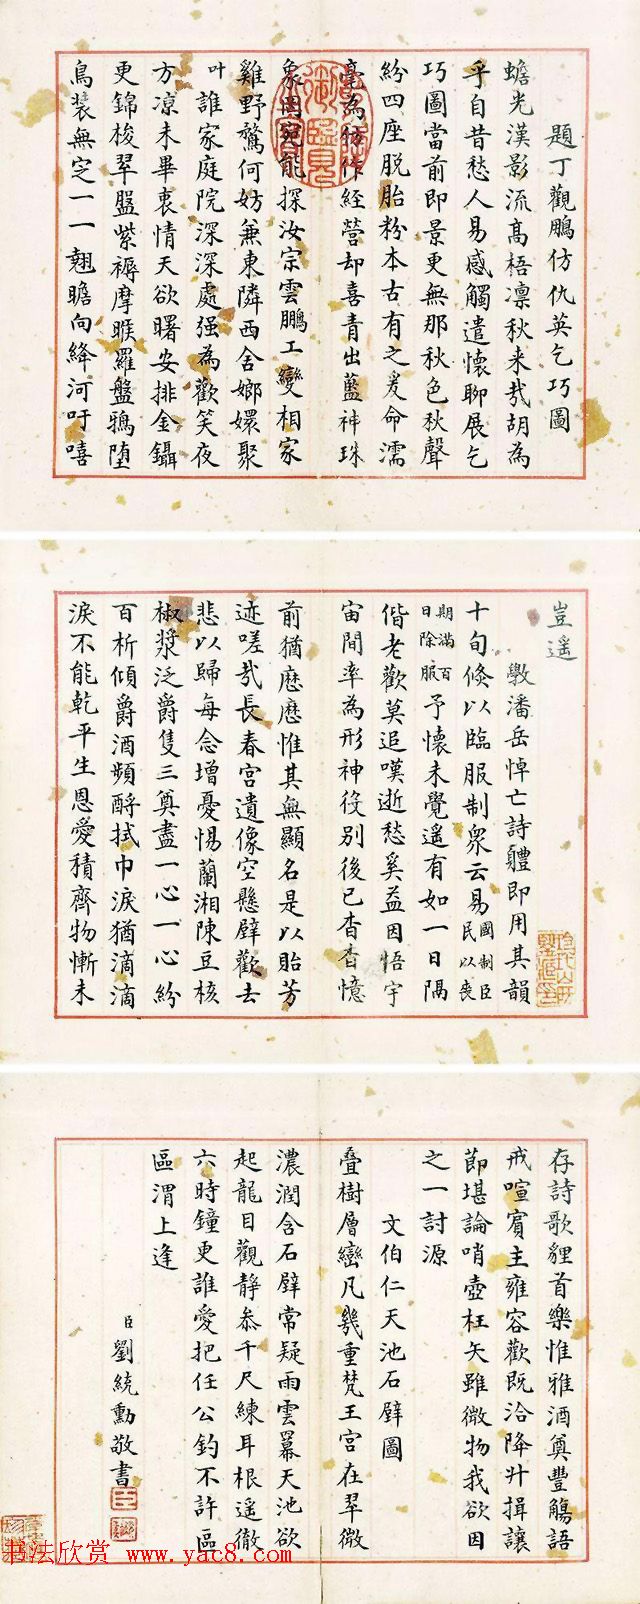 題丁觀鵬仿仇英乞巧圖
蟾光漢影流髙梧凛秋来㢤胡為
乎自昔愁人易感觸遣懷聊展乞
巧圖當前即景更無那秋色秋聲
紛四座脱胎粉本古有之爰命濡
毫為仿作経營却喜青出藍神珠
象罔宛能探汝宗雲鵬工變相家
雞野鶩何妨兼東隣西舍嫏嬛聚
叶誰家庭院深深處强為歡笑夜
方凉未畢衷情天欲曙安排金鑷
更錦梭翠盌紫褥摩睺羅盤鴉堕
鳥装無定一一翹瞻向絳河吁嘻
豈遥
斆潘岳悼亡詩體即用其韻
十旬倏以臨服制衆云易國制臣民以喪
期滿百日除服予懷未覺遥有如一日隅
偕老歡莫追嘆逝愁奚益因悟宇
宙間率為形神役别後已杳杳憶
前猶歴歴惟其無顯名是以貽芳
迹嗟㢤長春宫遺像空懸壁歡去
悲以歸每念增憂惕蘭湘陳豆核
椒漿泛爵隻三奠盡一心一心紛
百析傾爵酒頻酹拭巾淚猶滴滴
淚不能乾平生恩愛積齊物慚未
存詩歌貍首樂惟雅酒奠豐觴語
戒喧賓主雍容歡既洽降升揖讓
節堪論哨壺枉矢雖微物我欲因
之一討源
文伯仁天池石壁圖
疊樹層巒凡幾重梵王宫在翠微
濃潤含石壁常疑雨雲羃天池欲
起龍目觀静叅千尺練耳根遥徹
六時鐘更誰愛把任公釣不許區
區渭上逢
臣劉統勳敬書
书法欣赏 www.yac8.com